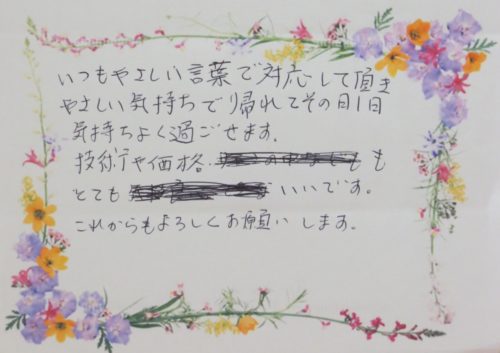 いつもやさしい言葉で対応して頂き
やさしい気持ちで帰れてその日1日
気持ちよく過ごせます。
技術や価格 も
とても いいです。
これからもよろしくお願いします。